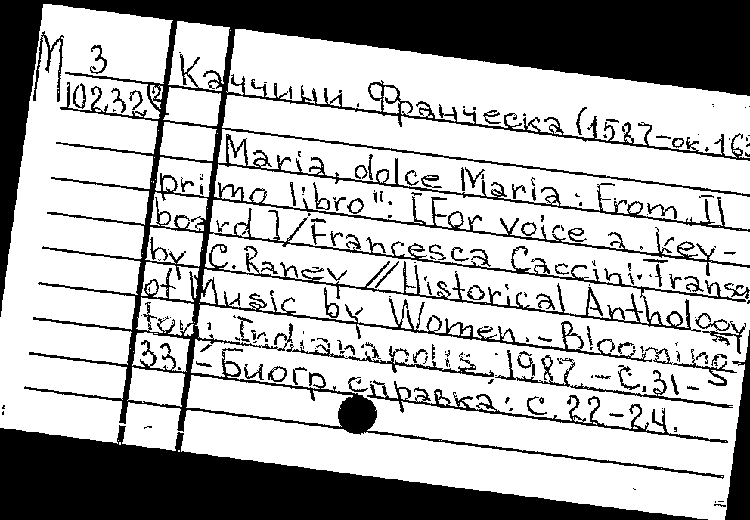 М 3
10232②
Каччини. Франческа (1587-ок. 163
Maria, dolce Maria: From „Il
primo libro": [For voice a. key-
board]/Francesca Caccini; Transc
by C. Raney // Historical Anthology
of Music by Women. - Blooming-
ton; Indianapolis, 1987. - С. 31-
33. - Биогр. справка: с. 22-24.